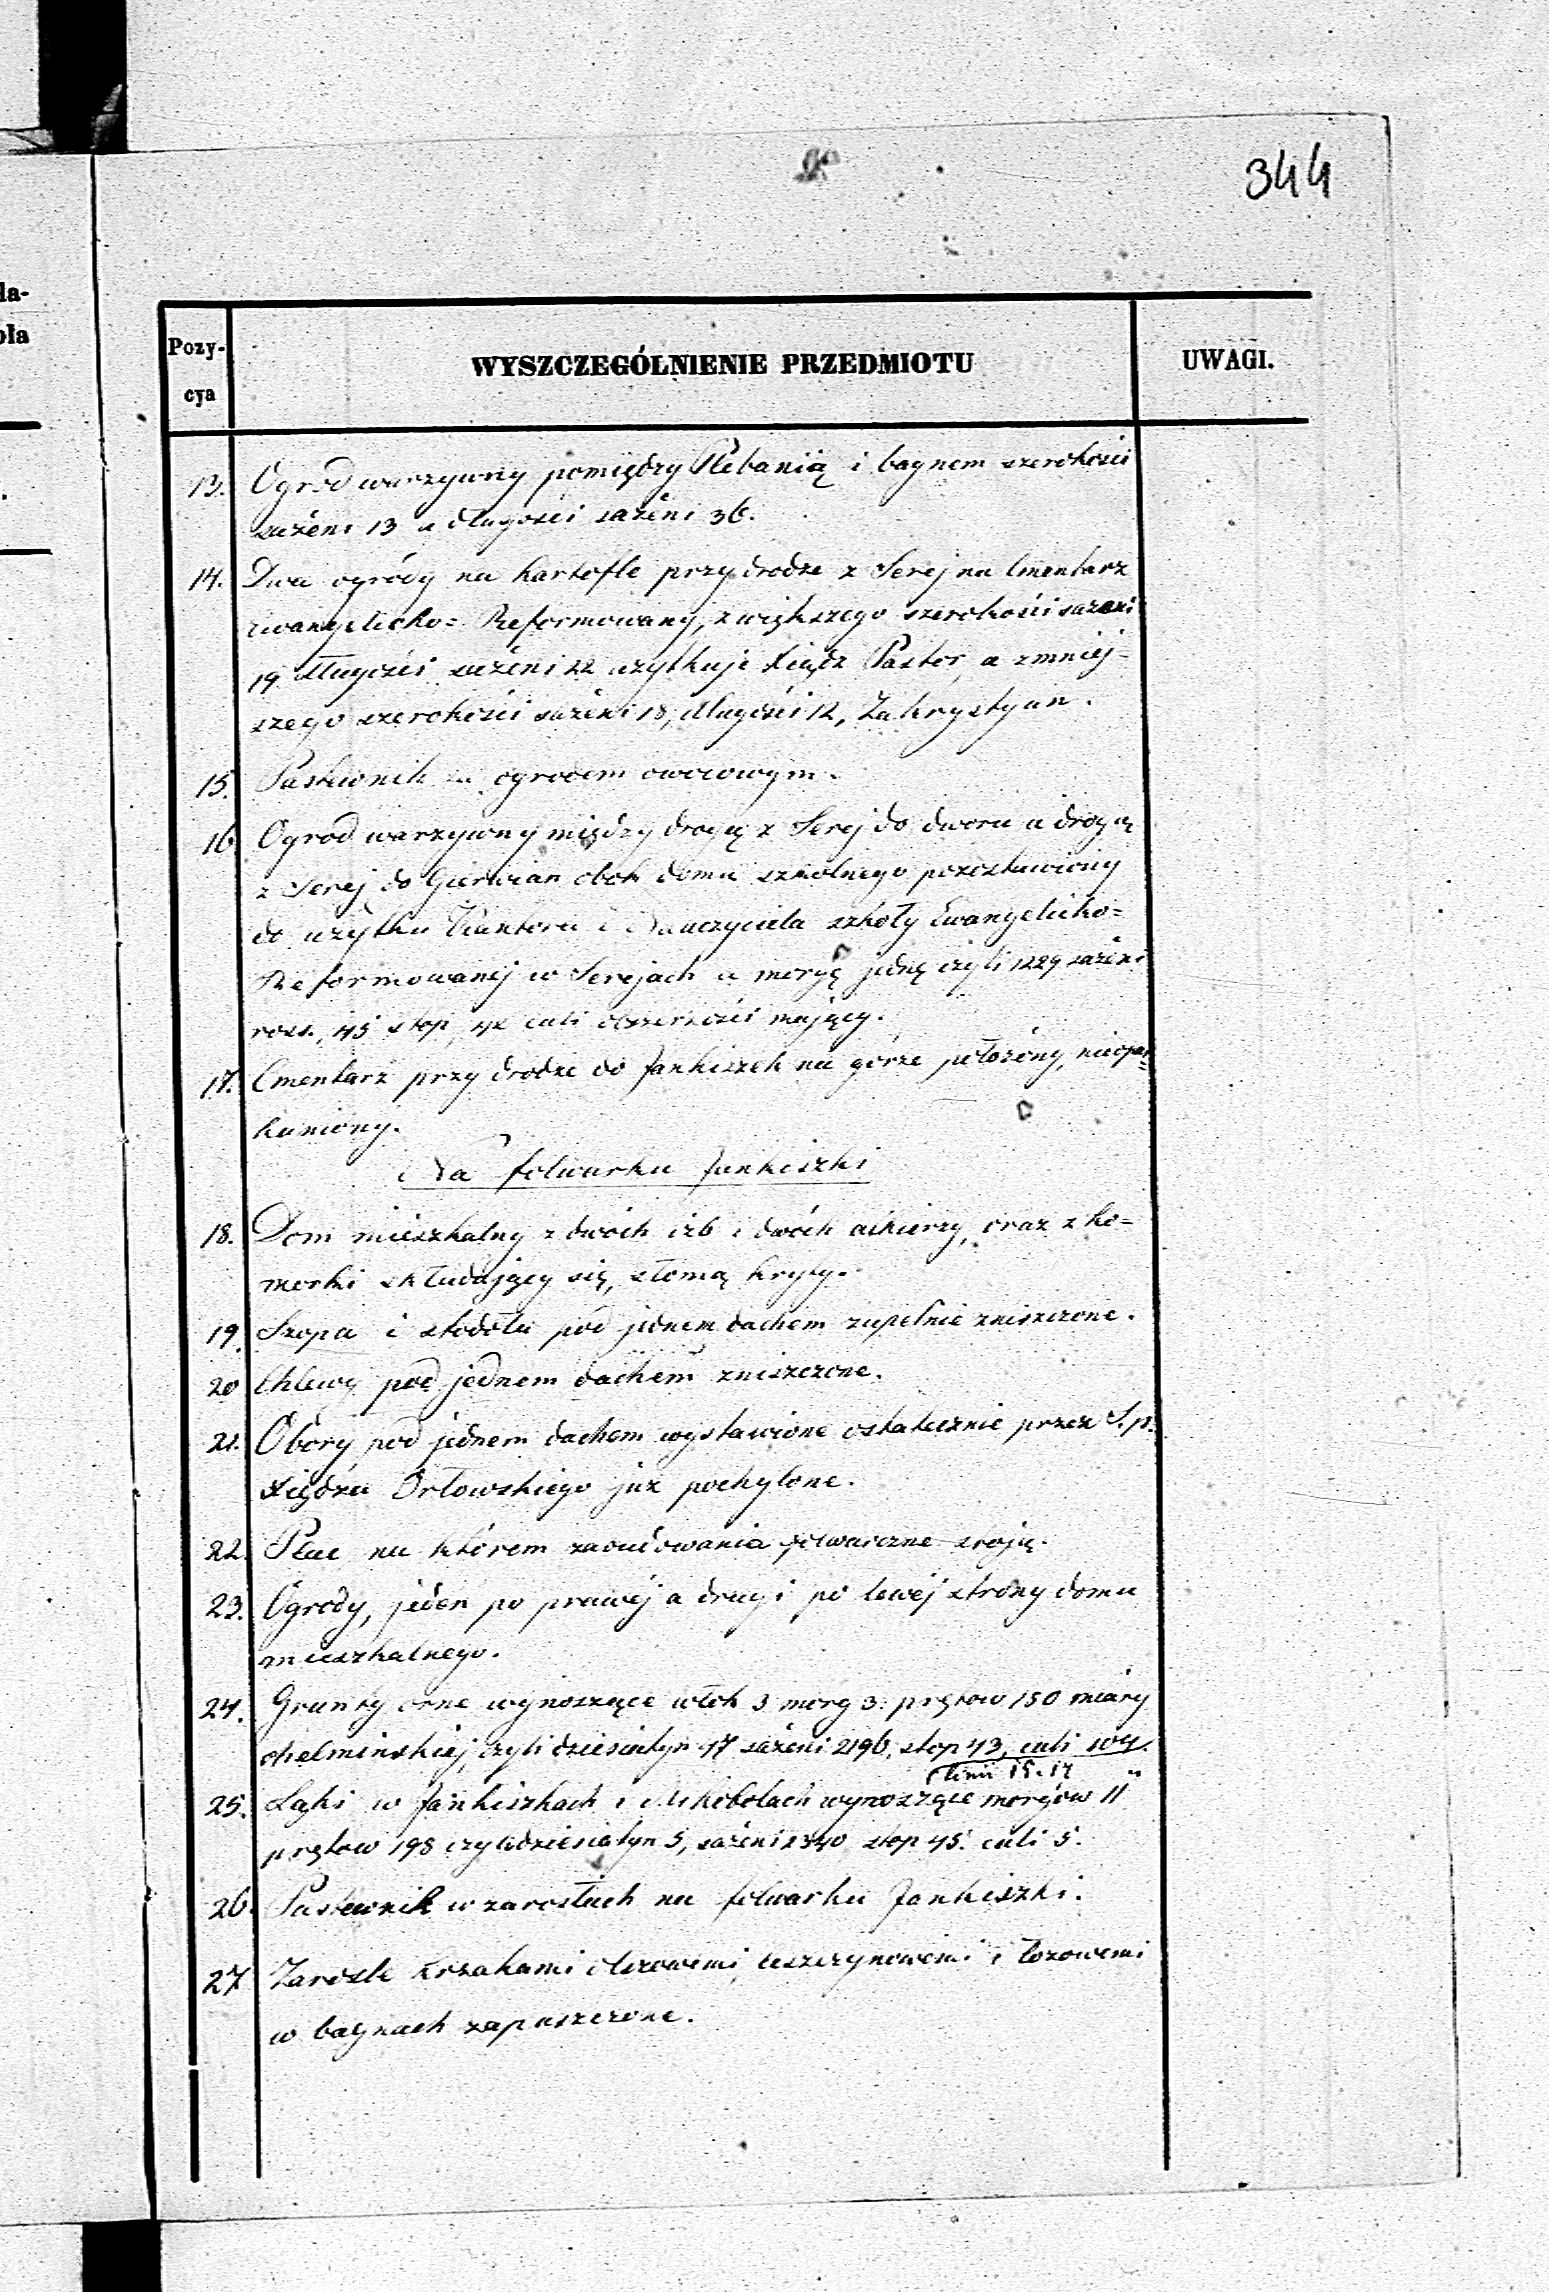 344
la-
ola
Pozy-
cya
WYSZCZEGÓLNIENIE PRZEDMIOTU
UWAGI.
13. Ogród warzywny pomiędzy Plebanią i bagnem szerokości
sążeni 13 a długości sążeni 36.
14. Dwa ogródy na kartofle przy drodze z Serej na Cmentarz
ewangelicko= Reformowany, z większego szerokości sążeni
19 długości sążeni 22 użytkuje Xiądz Pastor, a z mniej-
szego szerokości sążeni 18, długości 12, Zakrystyan.
15. Pastewnik za ogrodem owocowym.
16. Ogrod warzywny między drogą z Serej do dworu a drogą
z Serej do Gierwian obok domu szkolnego pozostawiony
do użytku Kantora i Nauczyciela szkoły Ewangelicko=
Reformowanej w Serejach a morgę jednę czyli 1229 sążeni
ross., 45 stop, 42 cali obszerności mający.
17. Cmentarz przy drodze do Jankiszek na górze położóny, nieopar-
kaniony.
Na folwarku Jankiszki
18. Dom mieszkalny z dwóch izb i dwóch alkierzy, oraz z ko=
morki składający się, słomą kryty.
19. Szopa i stodoła pod jednem dachem zupełnie zniszczone.
20 Chlewy pod jednem dachem zniszczone.
21. Obory pod jednem dachem wystawione ostatecznie przez S.p.
Xiędza Orłowskiego już pochylone.
22. Plac na którem zabudowania folwarczne stoją.
23. Ogrody, jeden po prawej a drugi po lewéj strony domu
mieszkalnego.
24. Grunty orne wynoszące włok 3 morg 3. prętow 150 miary
chelmińskiej, czyli dziesiatyn 47 sążeni 2196, stop 43, cali
linii 15.17
25. Łąki w Jankiszkach i Mikibolach wynoszące morgów 11
prętow 198 czyli dziesiatyn 5, sążeni 2340 stop 45. cali 5.
26. Pastewnik w zaroślach na folwarku Jankiszki.
27 Zarosle krzakami olszowemi, leszczynowemi i łozowemi
w bagnach zapuszczone.